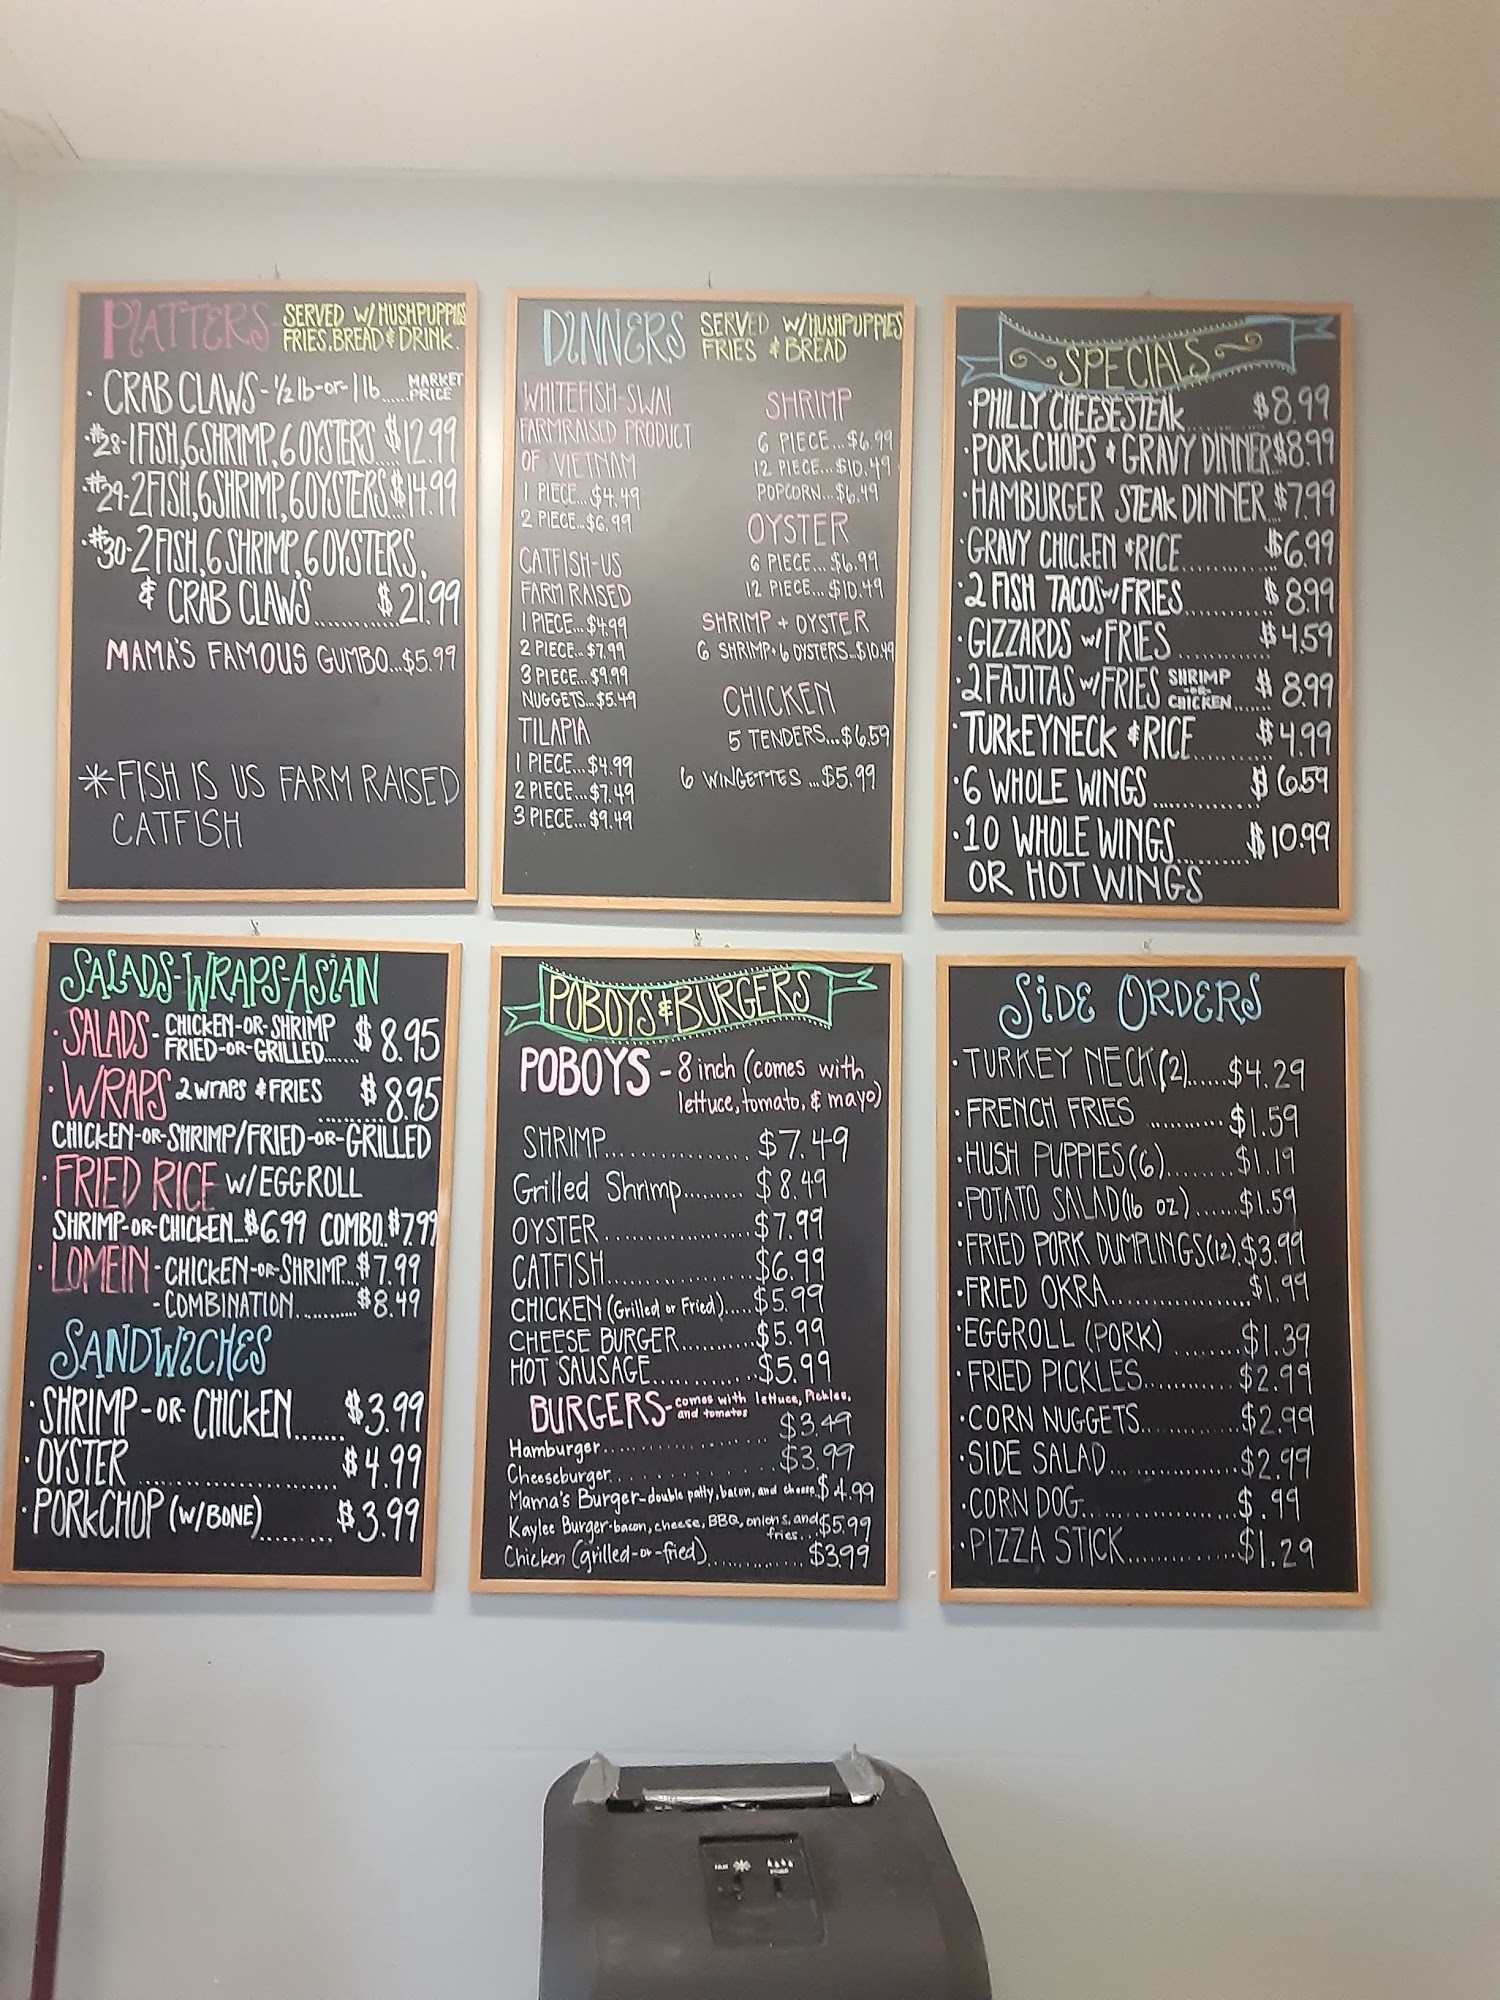 PLATTERS - SERVED W/ HUSHPUPPIES
FRIES, BREAD & DRINK.
· CRAB CLAWS - ½ lb -or- 1 lb...... MARKET PRICE
· #28 - 1 FISH, 6 SHRIMP, 6 OYSTERS... $12.99
· #29 - 2 FISH, 6 SHRIMP, 6 OYSTERS... $14.99
· #30 - 2 FISH, 6 SHRIMP, 6 OYSTERS,
& CRAB CLAWS........... $21.99
MAMA'S FAMOUS GUMBO...$5.99
* FISH IS US FARM RAISED
CATFISH
DINNERS SERVED W/HUSHPUPPIES
FRIES & BREAD
WHITEFISH-SWAI
FARMRAISED PRODUCT
OF VIETNAM
1 PIECE...$4.49
2 PIECE...$6.99
CATFISH-US
FARM RAISED
1 PIECE...$4.99
2 PIECE...$7.99
3 PIECE...$9.99
NUGGETS...$5.49
TILAPIA
1 PIECE...$4.99
2 PIECE...$7.49
3 PIECE...$9.49
SHRIMP
6 PIECE...$6.99
12 PIECE...$10.49
POPCORN...$6.49
OYSTER
6 PIECE...$6.99
12 PIECE...$10.49
SHRIMP + OYSTER
6 SHRIMP + 6 OYSTERS...$10.49
CHICKEN
5 TENDERS...$6.59
6 WINGETTES ...$5.99
SPECIALS
· PHILLY CHEESESTEAK........... $8.99
· PORK CHOPS & GRAVY DINNER $8.99
· HAMBURGER STEAK DINNER.. $7.99
· GRAVY CHICKEN & RICE........... $6.99
· 2 FISH TACOS W/ FRIES........... $8.99
· GIZZARDS W/ FRIES ........... $4.59
· 2 FAJITAS W/ FRIES SHRIMP -OR- CHICKEN...... $8.99
· TURKEYNECK & RICE........... $4.99
· 6 WHOLE WINGS.............. $6.59
· 10 WHOLE WINGS........... $10.99
OR HOT WINGS
SALADS-WRAPS-ASIAN
· SALADS - CHICKEN-OR-SHRIMP
FRIED-OR-GRILLED...... $8.95
· WRAPS 2 WRAPS & FRIES ........... $8.95
CHICKEN-OR-SHRIMP/FRIED-OR-GRILLED
· FRIED RICE W/EGGROLL
SHRIMP-OR-CHICKEN...$6.99 COMBO.$7.99
· LOMEIN - CHICKEN-OR-SHRIMP...$7.99
- COMBINATION...........$8.49
SANDWICHES
· SHRIMP-OR-CHICKEN....... $3.99
· OYSTER ........................ $4.99
· PORKCHOP (W/BONE)........... $3.99
POBOYS & BURGERS
POBOYS - 8 inch (comes with
lettuce, tomato, & mayo)
SHRIMP.................. $7.49
Grilled Shrimp......... $8.49
OYSTER.................. $7.99
CATFISH.................. $6.99
CHICKEN (Grilled or Fried)..... $5.99
CHEESE BURGER........... $5.99
HOT SAUSAGE.............. $5.99
BURGERS - comes with lettuce, Pickles,
and tomatos
Hamburger.................. $3.49
Cheeseburger.............. $3.99
Mama's Burger - double patty, bacon, and cheese. $4.99
Kaylee Burger - bacon, cheese, BBQ, onions, and fries... $5.99
Chicken (grilled-or-fried).............. $3.99
SIDE ORDERS
· TURKEY NECK (2)...... $4.29
· FRENCH FRIES .......... $1.59
· HUSH PUPPIES (6)....... $1.19
· POTATO SALAD (16 oz)...... $1.59
· FRIED PORK DUMPLINGS (12). $3.99
· FRIED OKRA.................. $1.99
· EGGROLL (PORK) ....... $1.39
· FRIED PICKLES........... $2.99
· CORN NUGGETS........... $2.99
· SIDE SALAD.............. $2.99
· CORN DOG.................. $.99
· PIZZA STICK.............. $1.29